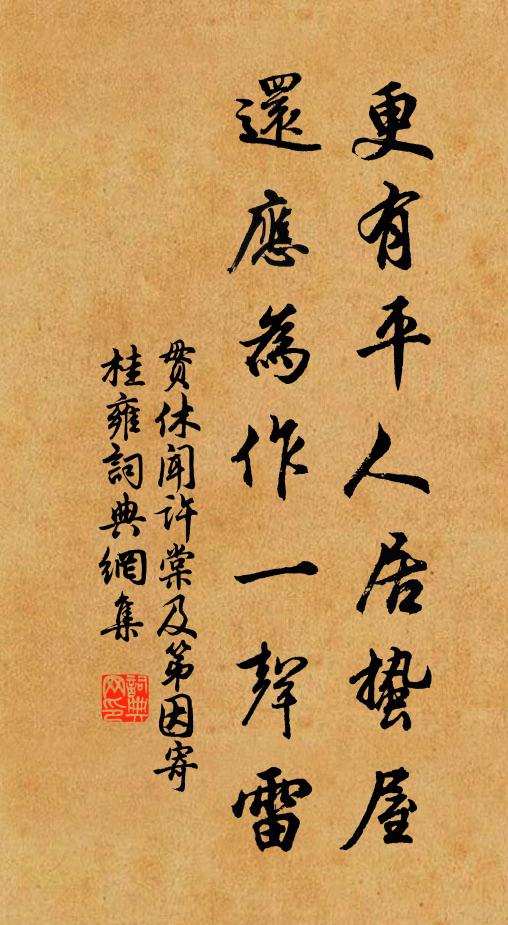 更有平人居蟄屋
還應為作一聲雷
貫休聞許棠及第因寄
桂雍詞典網集
詞典網印